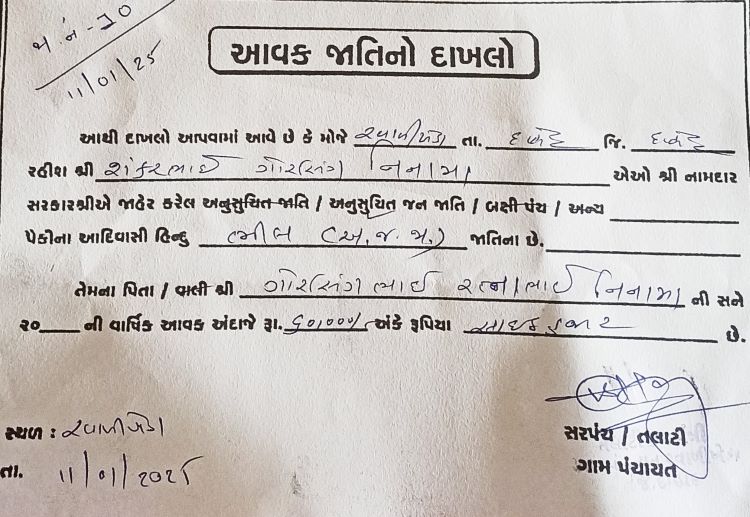 જા.નં-૩૦
11/01/25
આવક જાતિનો દાખલો
આથી દાખલો આપવામાં આવે છે કે મોજે રવાળીખેડા તા. દાહોદ જિ. દાહોદ
રહીશ શ્રી શંકરભાઈ ગોરસિંગ નિનામા એઓ શ્રી નામદાર
સરકારશ્રીએ જાહેર કરેલ અનુસુચિત જાતિ / અનુસુચિત જન જાતિ / બક્ષી પંચ / અન્ય
પૈકીના આદિવાસી હિન્દુ ભીલ (અ.જ.જા.) જાતિના છે.
તેમના પિતા / વાલી શ્રી ગોરસિંગભાઈ રત્નાભાઈ નિનામા ની સને
૨૦ ની વાર્ષિક આવક અંદાજે રૂા. ૬૦,૦૦૦/- અંકે રૂપિયા સાઈઠ હજાર છે.
સ્થળ : રવાળીખેડા
તા. 11/01/2025
સરપંચ / તલાટી
ગામ પંચાયત